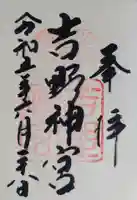 奉拝
吉野神宮
令和五年月廿八日